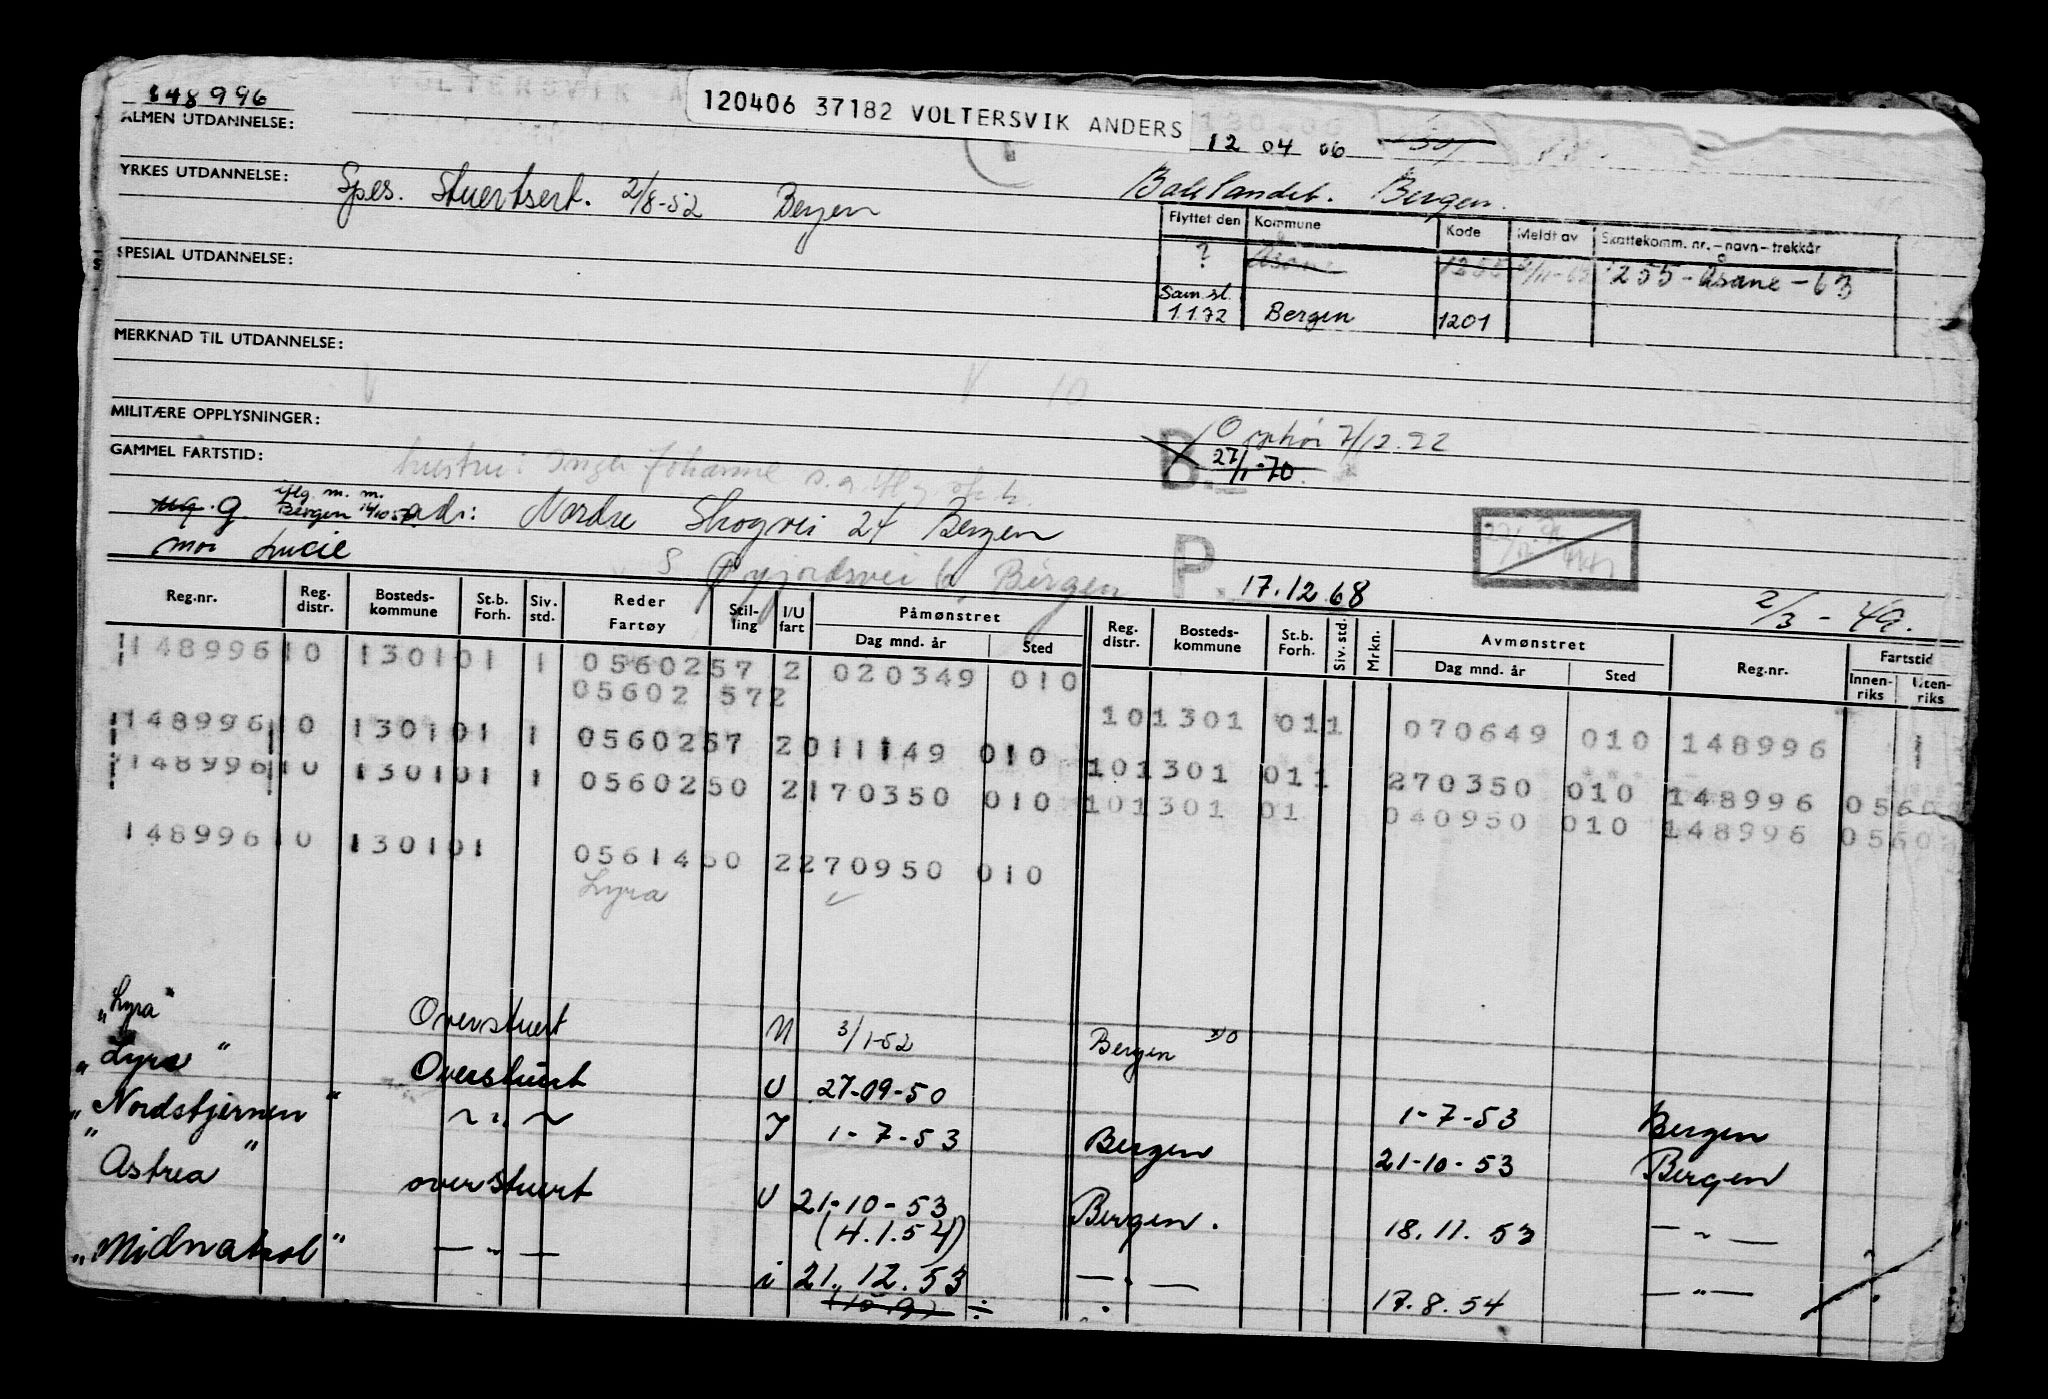 148996
120406 37182 VOLTERSVIK ANDERS
ALMEN UTDANNELSE:
12 04 06
YRKES UTDANNELSE: Spes. Stuertsert. 2/8-52 Bergen
Bergen.
Flyttet den Kommune Kode Meldt av Skattekomm. nr. – navn – trekkår
? Åsane 1255 1255 - Åsane - 63
SPESIAL UTDANNELSE:
Sam.sl.
1.1.72 Bergen 1201
MERKNAD TIL UTDANNELSE:
MILITÆRE OPPLYSNINGER:
B. Opphør 7/12.22
27/1-70.
GAMMEL FARTSTID:
hustru: Inger Johanne
g. iflg. m. m. Bergen adr: Nordre Skogvei 24 Bergen
mor Lucie
Bergen
P. 17.12.68
2/3 - 49.
Reg.nr. Reg. distr. Bosteds-kommune St.b. Forh. Siv. std. Reder Fartøy Stil-ling I/U fart Påmønstret Dag mnd. år Sted Reg. distr. Bosteds-kommune St.b. Forh. Siv. std. Mrkn. Avmønstret Dag mnd. år Sted Reg.nr. Fartstid Innen-riks Uten-riks
148996 10 1301 01 1 0560257 2 020349 010
05602 572
101301 011 070649 010 148996
148996 10 1301 01 1 0560257 2 011149 010
101301 011 270350 010 148996 0560
148996 10 1301 01 1 0560250 2 170350 010
101301 01 040950 010 148996 0560
148996 10 1301 01 0561450 2 270950 010
Lyra
"Lyra" Overstuert U 3/1-52 Bergen
"Lyra" Overstuert U 27-09-50 1-7-53 Bergen
"Nordstjernen" ~ " ~ I 1-7-53 Bergen 21-10-53 Bergen
"Astrea" overstuert U 21-10-53 Bergen. 18.11.53 — " —
(4.1.54)
"Midnatsol" — " — i 21.12.53 — " — 17.8.54 — " —